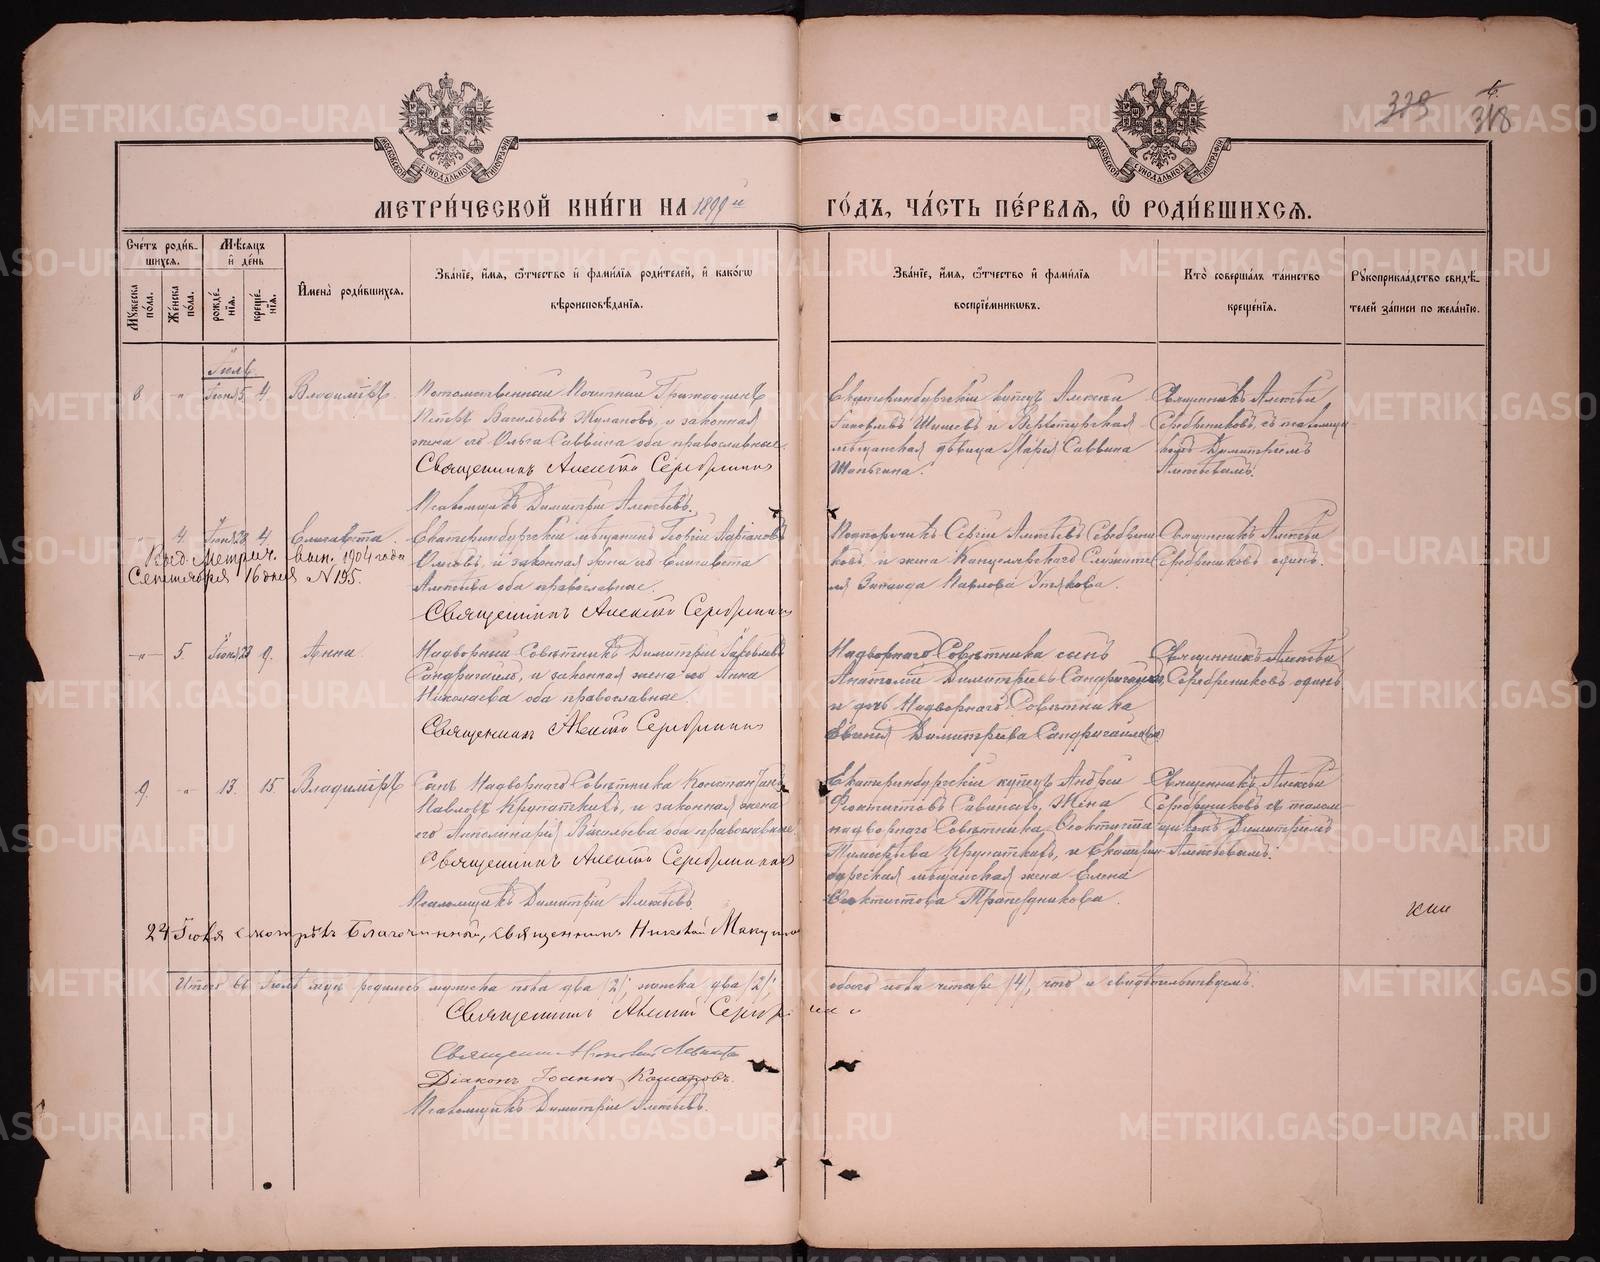 328 318
МОСКОВСКОЙ СУНОДАЛЬНОЙ ТИПОГРАФІИ
МОСКОВСКОЙ СУНОДАЛЬНОЙ ТИПОГРАФІИ
МЕТРИ́ЧЕСКОЙ КНИ́ГИ НА 1899 й ГО́ДЪ, ЧА́СТЬ ПЕ́РВАЯ, Ѿ РОДИ́ВШИХСЯ.
Сче́тъ роди́в-
шихся.
Мѣсяцъ
и҆ де́нь
Му́жеска по́ла.
Же́нска по́ла.
рожде́-
нїя.
креще́-
нїя.
И҆мена̀ роди́вшихся.
Зва́нїе, и҆́мя, ѻ҆́тчество и҆ фами́лїя роди́телей, и҆ како́гѡ
вѣроисповѣ́данїя.
Зва́нїе, и҆́мя, ѻ҆́тчество и҆ фами́лїя
воспрїе́мниковъ.
Кто̀ соверша́лъ та́инство
креще́нїя.
Рꙋкоприкла́дство свидѣ́-
телей за́писи по жела́нїю.
Іюль.
8 " Іюня 5. 4. Владиміръ
Потомственный Почетный Гражданинъ
Петръ Васильевъ и законная
жена его Ольга Саввина оба православные.
Священникъ Алексій Серебренниковъ
Псаломщикъ Димитрій Алексѣевъ.
Екатеринбургскій купецъ Алексѣй
Яковлевъ и Верхотурская
мѣщанская дѣвица Марія Саввина
Священникъ Алексѣй
Серебренниковъ съ псаломщи-
комъ Димитріемъ
Алексѣевымъ.
" 4. Іюня 28 4. Елизавета.
Выд. Метрич. вып. 1904 года
Сентября 16 дня № 195.
Екатеринбургскій мѣщанинъ Георгій
и законная жена его Елизавета
Алексѣева оба православные.
Священникъ Алексій Серебренниковъ
Подпоручикъ Сергій Алексѣевъ Серебренни
ковъ, и жена Канцелярскаго Служите
ля Зинаида Павлова
Священникъ Алексѣй
Серебренниковъ одинъ.
" 5. Іюня 29 9. Анна.
Надворный Совѣтникъ Димитрій Яковлевъ
и законная жена его Анна
Николаева оба православные
Священникъ Алексій Серебренниковъ
Надворнаго Совѣтника сынъ
Анатолій Димитріевъ
и дочь Надворнаго Совѣтника
Евгенія Димитріева
Священникъ Алексѣй
Серебренниковъ одинъ
9. " 13. 15. Владиміръ
Сынъ Надворнаго Совѣтника Константинъ
Павловъ Крупаткинъ, и законная жена
его Апполинарія Васильева оба православные
Священникъ Алексій Серебренниковъ
Псаломщикъ Димитрій Алексѣевъ.
Екатеринбургскій купецъ Андрей
Феоктистовъ жена
надворнаго Совѣтника Феоктиста
Тимофеева Крупаткинъ, и Екатерин-
бургская мѣщанская жена Елена
Феоктистова Трапезникова.
Священникъ Алексѣй
Серебренниковъ съ псалом-
щикомъ Димитріемъ
Алексѣевымъ.
24 Іюля смотрѣлъ Благочинный, священникъ Николай
Итого въ Іюлѣ мцѣ родилось мужска пола два /2/, женска два /2/,
обоего пола четыре /4/, что и свидѣтельствуемъ.
Священникъ Алексій Серебренниковъ
Священникъ
Діаконъ Іоаннъ Комаровъ.
Псаломщикъ Димитрій Алексѣевъ.
METRIKI.GASO-URAL.RU